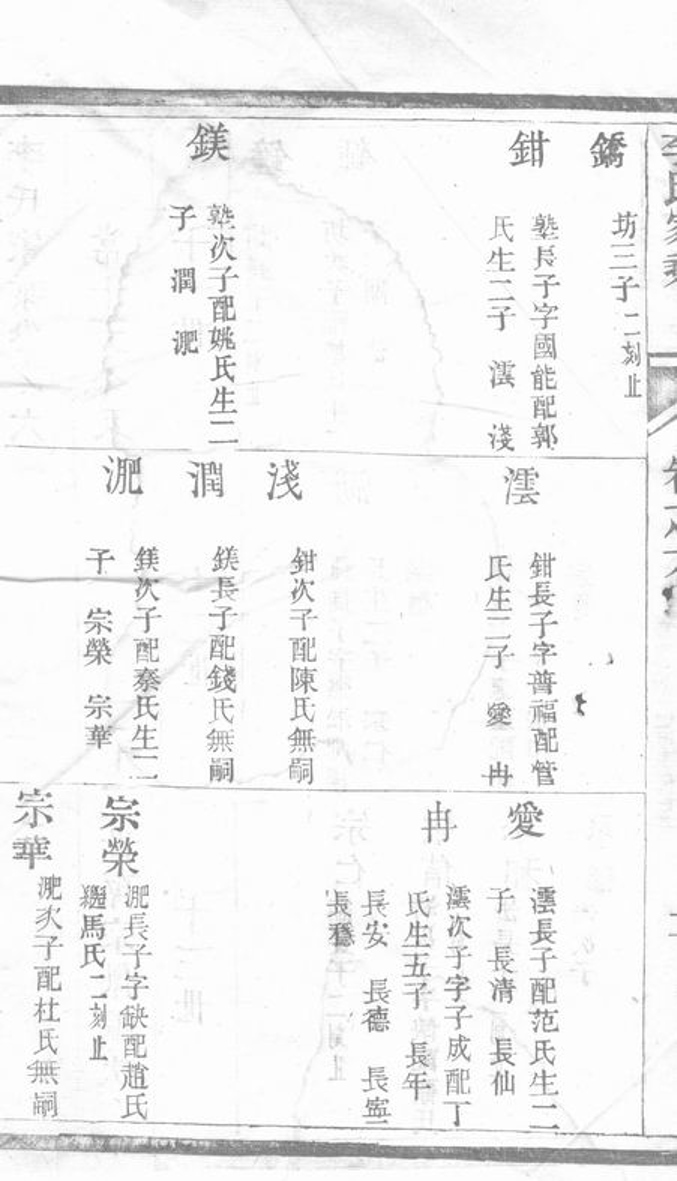 李氏家乘
卷之六
鐈
坊三子二刻止
鉗
塾長子字國能配郭
氏生二子 澐 淺
鎂
塾次子配姚氏生二
子 潤 淝
澐
鉗長子字普福配管
氏生二子 愛 冉
淺
鉗次子配陳氏無嗣
潤
鎂長子配錢氏無嗣
淝
鎂次子配秦氏生二
子 宗榮 宗華
愛
澐長子配范氏生二
子 長清 長仙
冉
澐次子字子成配丁
氏生五子 長年
長安 長德 長寧
長穩
宗榮
淝長子字缺配趙氏
繼馬氏二刻止
宗華
淝次子配杜氏無嗣